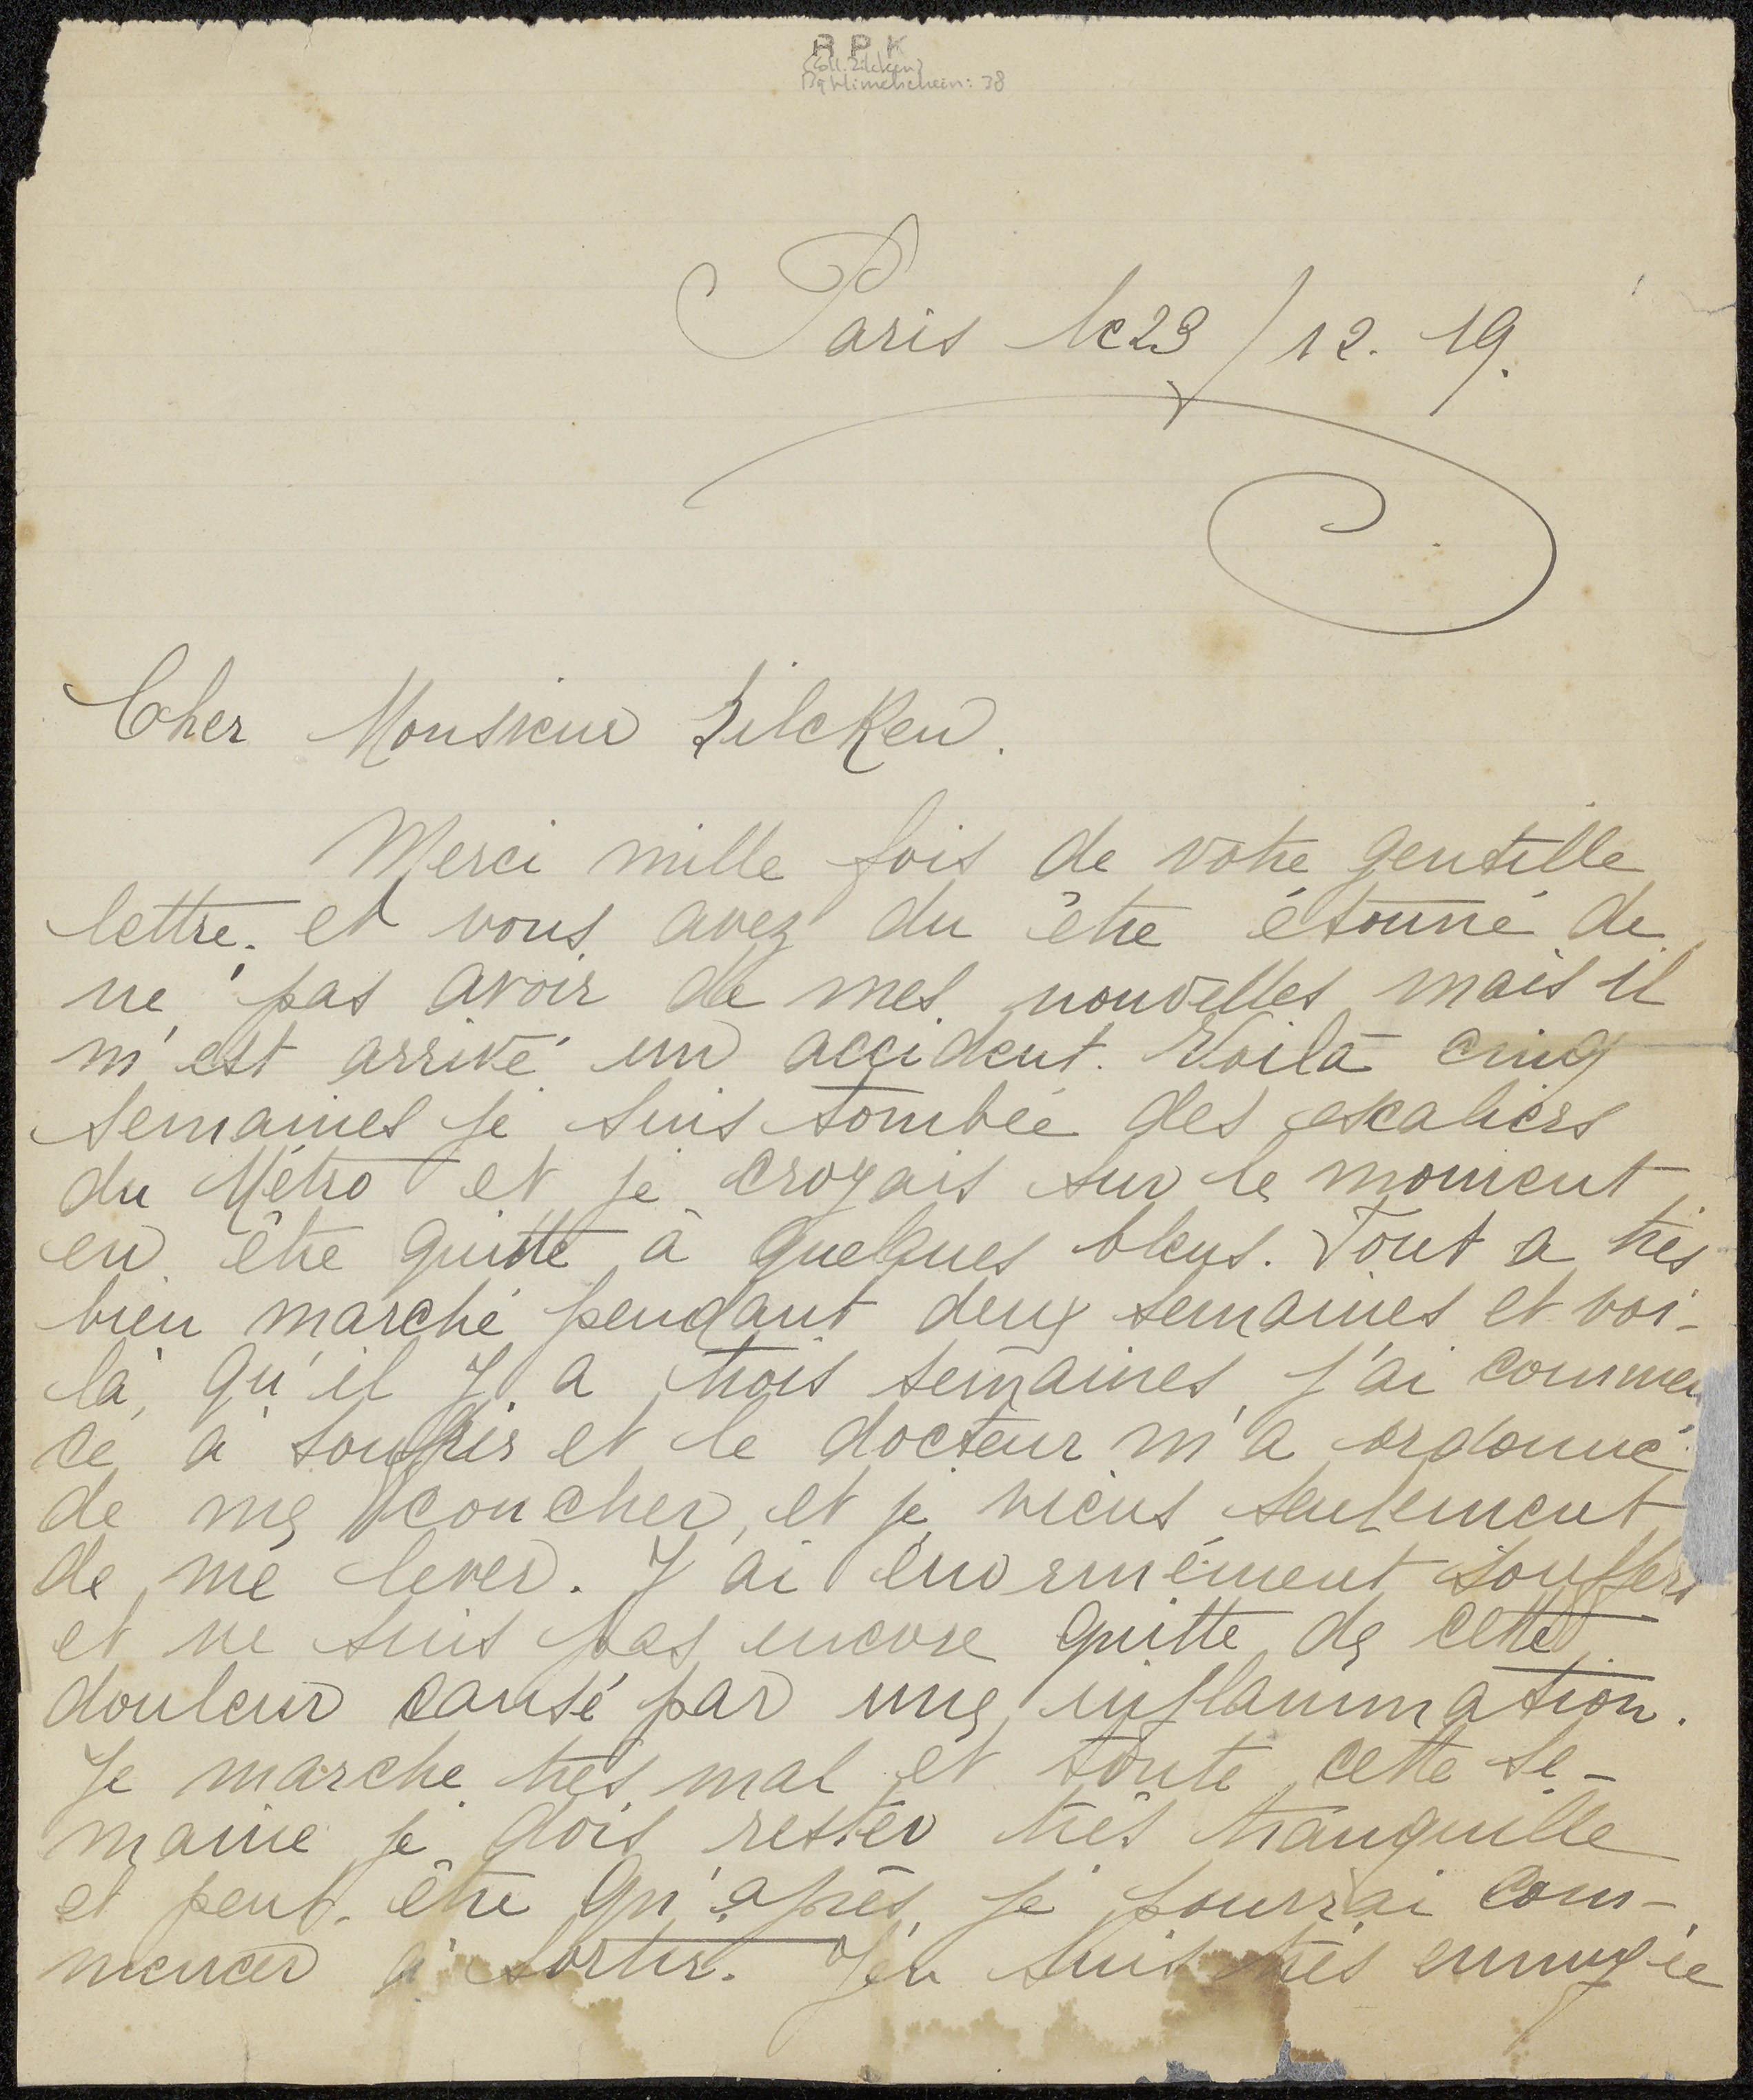 R P K
(Coll. Zilcken)
: 38
Paris le 23/12. 19.
Cher Monsieur Zilcken.
Merci mille fois de votre gentille
lettre. et vous avez du être étonné de
ne pas avoir de mes nouvelles mais il
m'est arrivé un accident. Voilà cinq
semaines je suis tombée des escaliers
du Métro et je croyais sur le moment
en être quitte à quelques bleus. Tout a très
bien marché pendant deux semaines et voi-
là, qu'il y a trois semaines j'ai commen
cé à souffrir et le docteur m'a ordonné
de me coucher, et je viens seulement
de me lever. J'ai énormément souffert
et ne suis pas encore quitte de cette
douleur causé par une inflammation.
Je marche très mal et toute cette se-
maine je dois rester très tranquille
et peut-être qu'après je pourrai com-
mencer à sortir. J'en suis très ennuyée